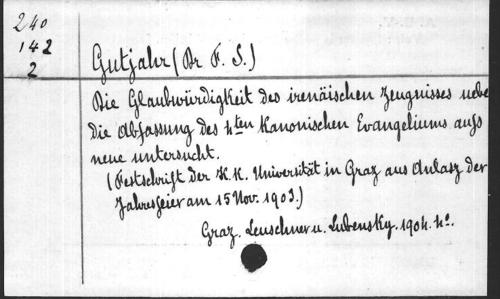 240
142
2
Gutjahr (Dr F. S.)
Die Glaubwürdigkeit des irenäischen Zeugnisses uebe
die Abfassung des 4ten Kanonischen Evangeliums aufs
neue untersucht.
(Festschrift der K. K. Universität in Graz aus Anlasz der
Jahresfeier am 15 Nov. 1903.)
Graz. Leuschner u. Lubensky. 1904. 4o.